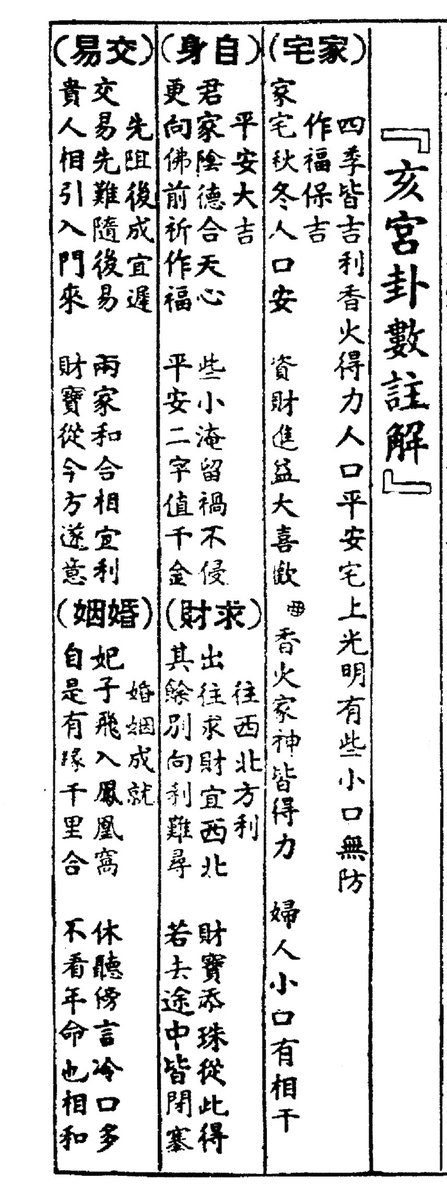 『亥宮卦數註解』
(家宅)
四季皆吉利香火得力人口平安宅上光明有些小口無防
作福保吉
家宅秋冬人口安 資財進益大喜歡 ㊞香火家神皆得力 婦人小口有相干
(自身)
平安大吉
君家陰德合天心 些小淹留禍不侵
更向佛前祈作福 平安二字值千金
(求財)
往西北方利
出往求財宜西北 財寶添珠從此得
其餘別向利難尋 若去途中皆閉塞
(交易)
先阻後成宜遲
交易先難隨後易 兩家和合相宜利
貴人相引入門來 財寶從今方遂意
(婚姻)
婚姻成就
妃子飛入鳳凰窩 休聽傍言冷口多
自是有緣千里合 不看年命也相和